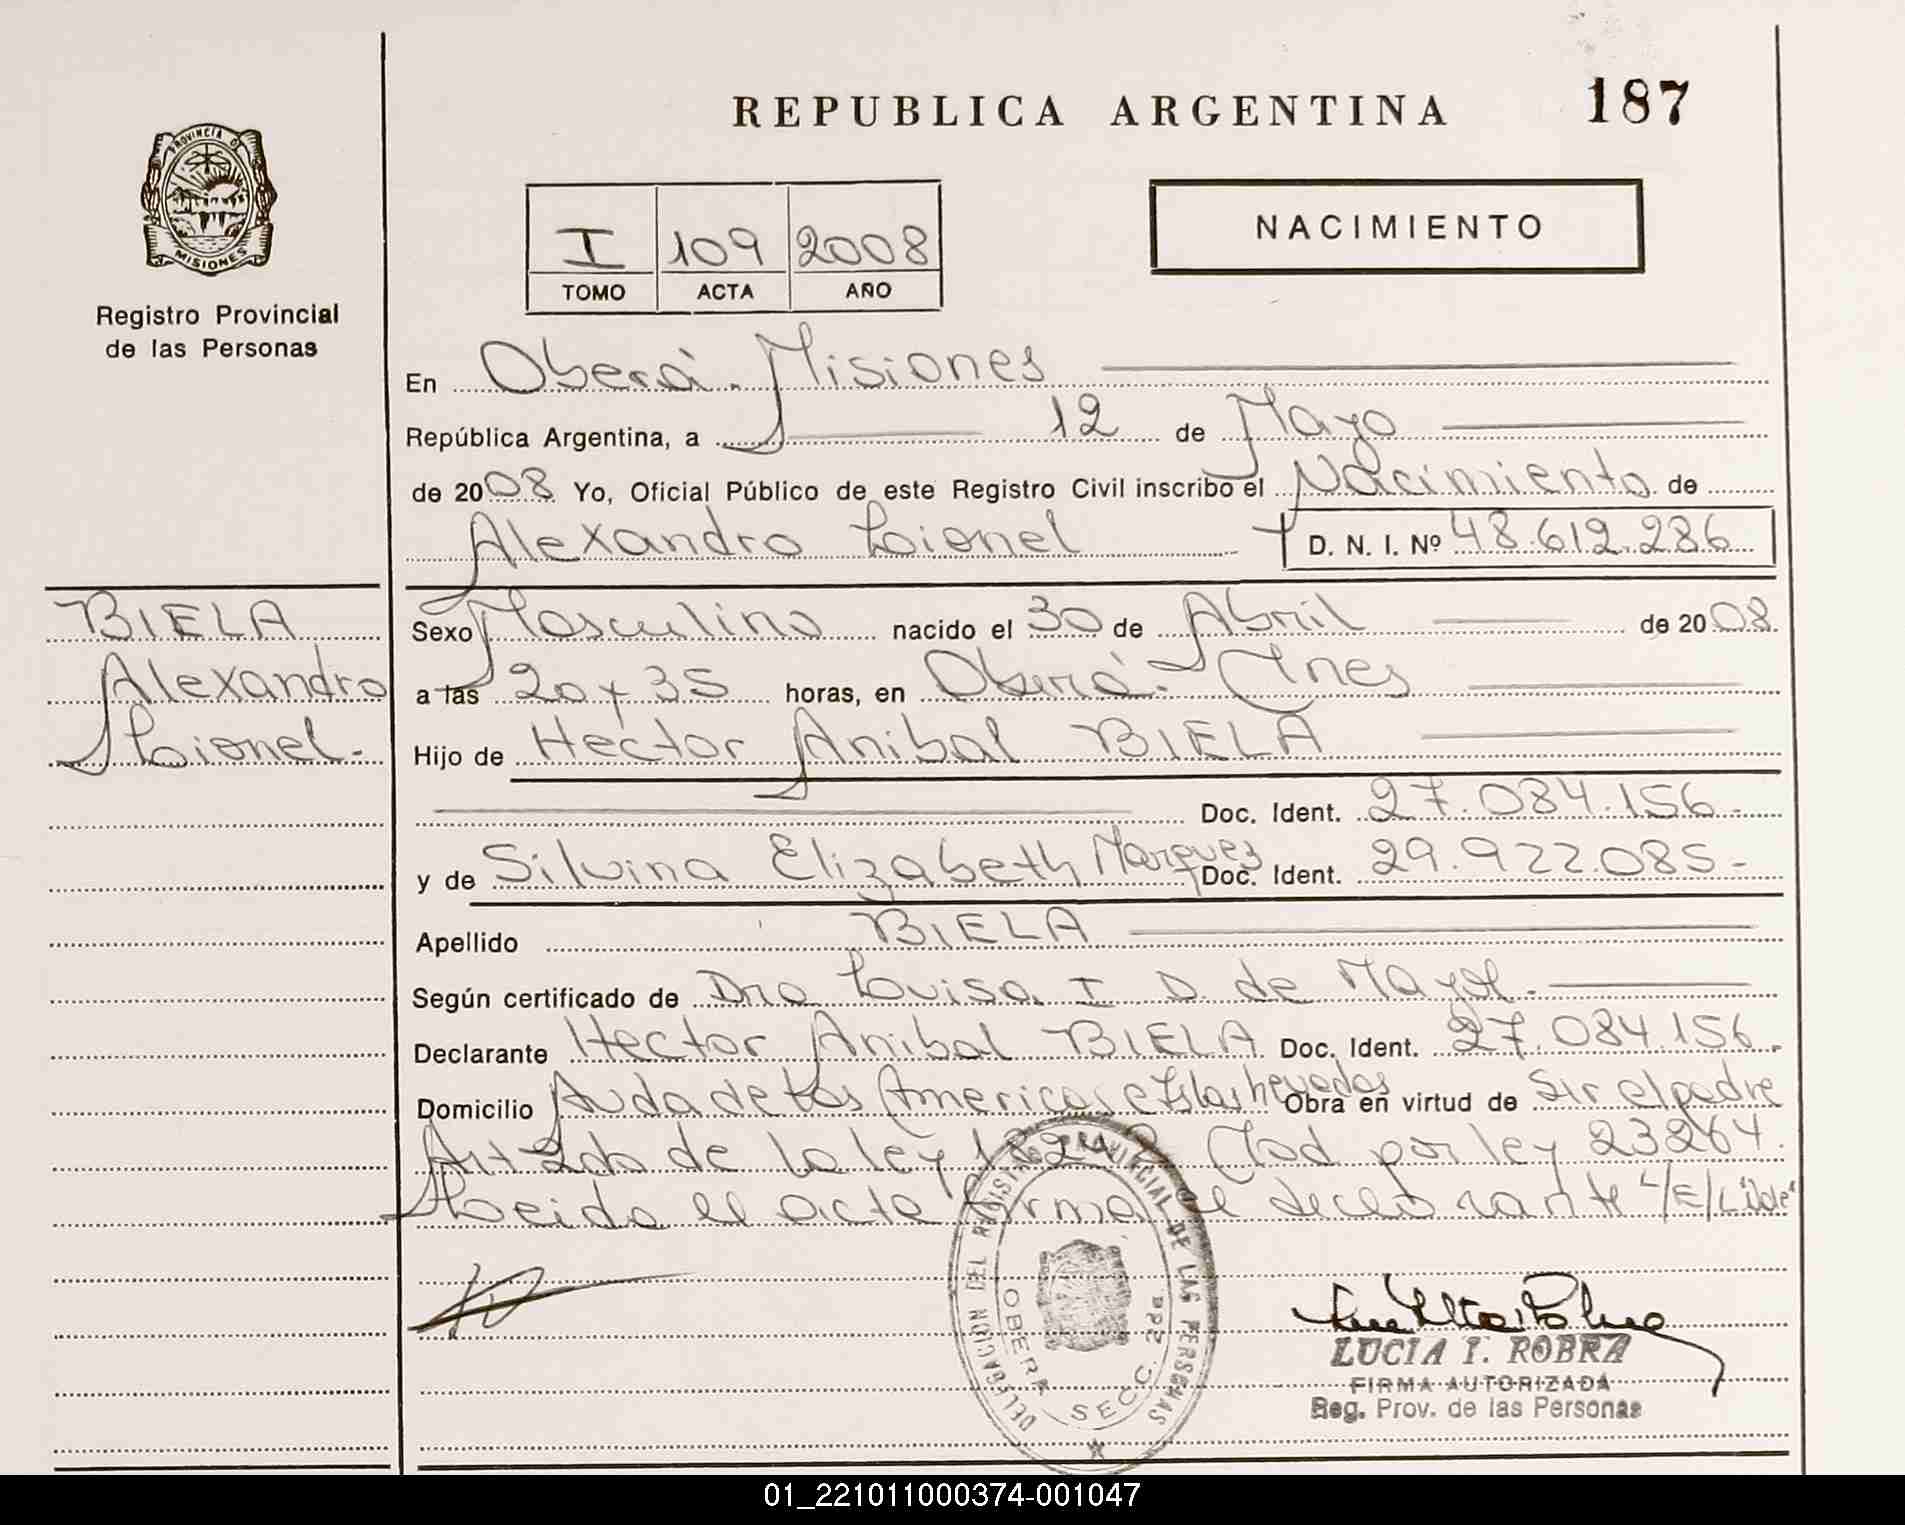 REPUBLICA ARGENTINA 187
PROVINCIA D
MISIONES
Registro Provincial
de las Personas
I 109 2008
TOMO ACTA AÑO
NACIMIENTO
En Oberá. Misiones
República Argentina, a 12 de Mayo
de 2008 Yo, Oficial Público de este Registro Civil inscribo el Nacimiento de
Alexandro Lionel D. N. I. Nº 48.612.286
BIELA
Alexandro
Lionel.
Sexo Masculino nacido el 30 de Abril de 2008
a las 20 y 35 horas, en Oberá. Mnes
Hijo de Hector Anibal BIELA
Doc. Ident. 27.084.156.
y de Silvina Elizabeth Marques Doc. Ident. 29.922.085-
Apellido BIELA
Según certificado de Dra Louisa I D. de Mayol.
Declarante Hector Anibal BIELA Doc. Ident. 27.084.156.
Domicilio Avda de Las Americas e Islas Obra en virtud de Sir el padre
Art 2do de la ley Mod por ley 23264.
Leida el acta firma el declarante "/E/Lilde"
DELEGACION DEL REGISTRO PROVINCIAL DE LAS PERSONAS
OBERA SECC. 2da
LUCIA I. ROBRA
FIRMA AUTORIZADA
Reg. Prov. de las Personas
01_221011000374-001047